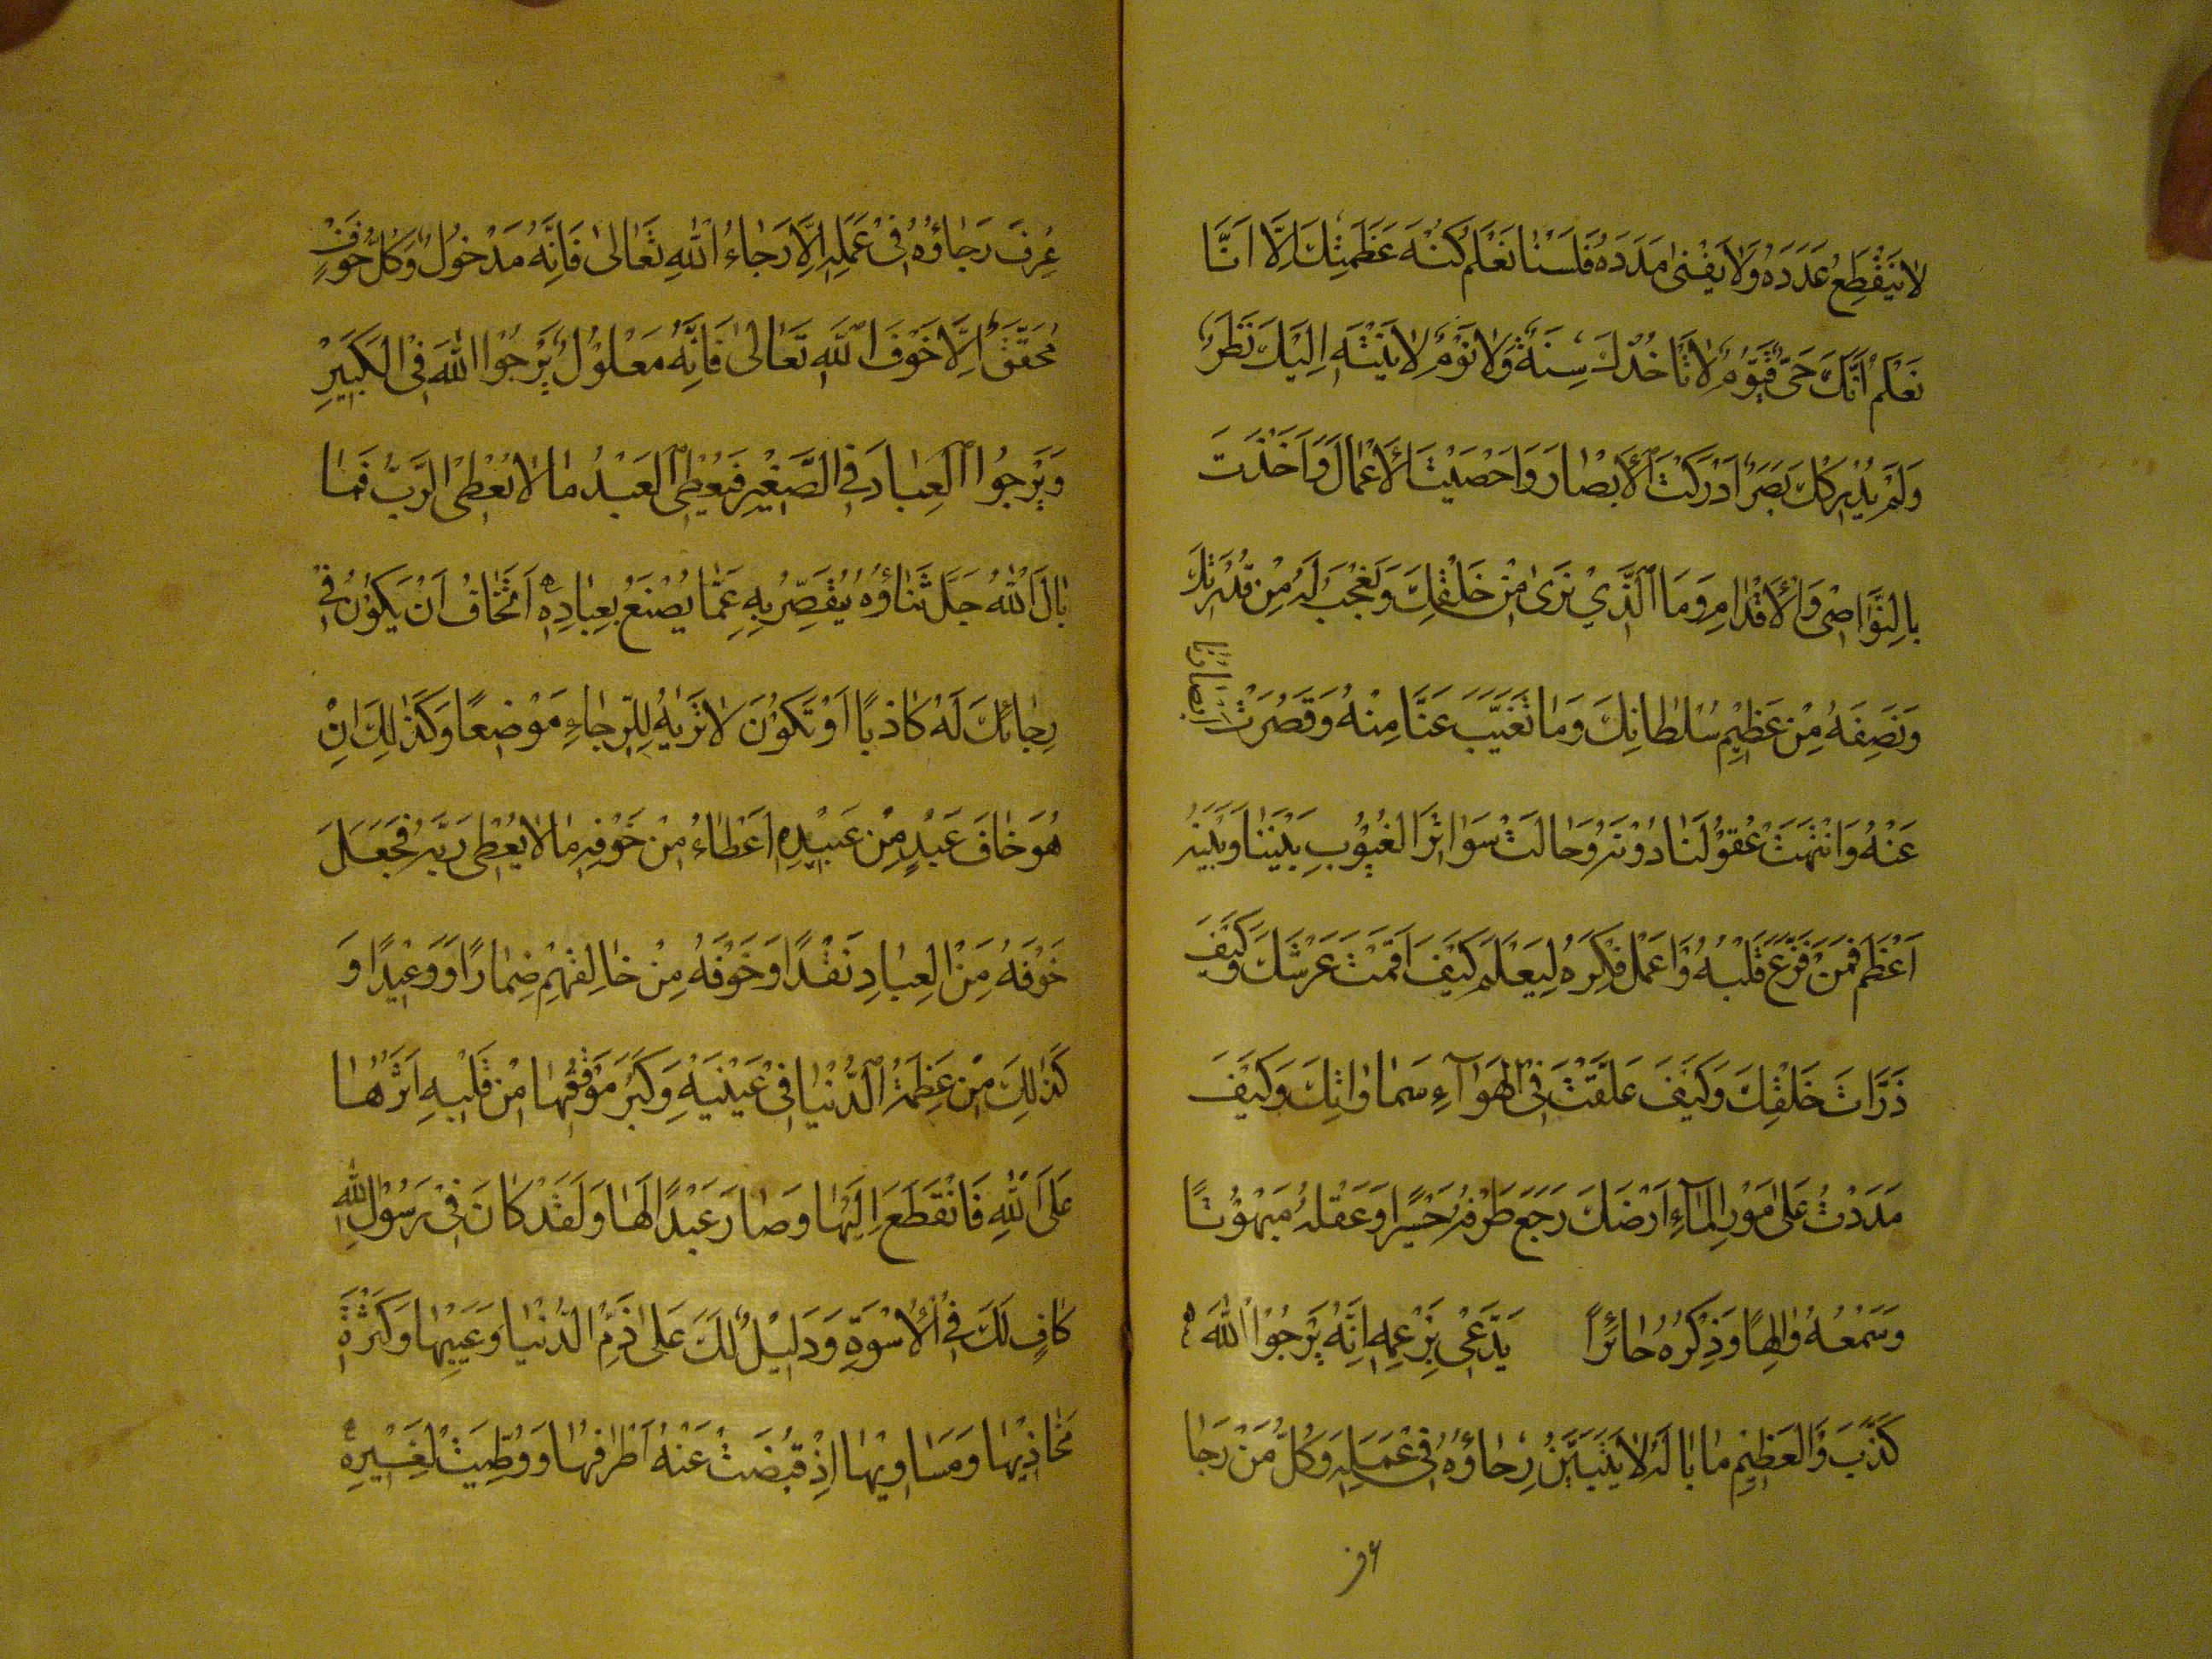 لا يَنْقَطِعُ عَدَدَهُ وَلا يَفْنىٰ مَدَدَهُ فَلَسْنا نَعْلَمُ كُنْهَ عَظَمَتِكَ اِلَّا اَنَّا
نَعْلَمُ اَنَّكَ حَىٌّ قَيُّومٌ لا تَأخُذُكَ سِنَةٌ وَلا نَوْمٌ لا يَنْتَهِ اِلَيْكَ نَظَرٌ
وَلَمْ يُدْرِكْكَ بَصَرٌ اَدْرَكْتَ الْاَبْصارَ وَاَحْصَيْتَ الْاَعْمالَ وَاَخَذْتَ
بِالنَّواصِى وَالْاَقْدامِ وَمَا الَّذِي نَرىٰ مِنْ خَلْقِكَ وَنَعْجَبُ لَهُ مِنْ قُدْرَتِكَ
وَنَصِفَهُ مِنْ عَظِيْمِ سُلْطانِكَ وَما تَغَيَّبَ عَنَّا مِنْهُ وَقَصُرَتْ اَبْصارُنا
عَنْهُ وَانْتَهَتْ عُقُوْلُنا دُوْنَهُ وَحالَتْ سَواتِرُ الْغُيُوْبِ بَيْنَنا وَبَيْنَهُ
اَعْظَمُ فَمَنْ فَرَّغَ قَلْبَهُ وَاَعْمَلَ فِكْرَهُ لِيَعْلَمَ كَيْفَ اَقَمْتَ عَرْشَكَ وَكَيْفَ
ذَرَّاتَ خَلْقِكَ وَكَيْفَ عَلَّقْتَ فِى الْهَوآءِ سَمٰواتِكَ وَكَيْفَ
مَدَدْتَ عَلىٰ مَوْرِ الْمَآءِ اَرْضَكَ رَجَعَ طَرْفُهُ حَسِيْرًا وَعَقْلُهُ مَبْهُوْتًا
وَسَمْعُهُ والِهًا وَذِكْرُهُ حائِرًا يَدَّعِىْ بِزَعْمِهِ اِنَّهُ يَرْجُوا اللهَ
كَذَّبَ وَالْعَظِيْمِ ما بالُهُ لا يَتَبَيَّنُ رِجاؤُهُ فِى عَمَلِهِ وَكُلُّ مَنْ رَجا
۶و
عُرِفَ رَجاؤُهُ فِىْ عَمَلِهِ اِلَّا رَجاءُ اللهِ تَعالىٰ فَاِنَّهُ مَدْخُوْلٌ وَكُلُّ خَوْفٍ
مُحَقَّقٌ اِلَّا خَوْفَ اللهِ تَعالىٰ فَاِنَّهُ مَعْلُوْلٌ يَرْجُوا اللهَ فِى الْكَبِيْرِ
وَيَرْجُوا الْعِبادَ فِى الصَّغِيْرِ فَيُعْطِى الْعَبْدُ ما لا يُعْطِى الرَّبَّ فَما
بالَ اللهُ جَلَّ ثَناؤُهُ يُقَصِّرُ بِهِ عَمَّا يُصْنَعُ بِعِبادِهِ اَتَخافُ اَنْ يَكُوْنَ فِى
رِجائِكَ لَهُ كاذِبًا اَوْ تَكُوْنَ لا تَريٰهُ لِلرِّجاءِ مَوْضِعًا وَكَذٰلِكَ اِنْ
هُوَ خافَ عَبْدٍ مِنْ عَبِيْدِهِ اَعْطاءُ مِنْ خَوْفِهِ ما لا يُعْطِى رَبَّهُ فَجَعَلَ
خَوْفَهُ مِنَ الْعِبادِ نَقْدًا وَخَوْفَهُ مِنْ خالِقِهِمْ ضِمارًا وَوَعِيْدًا وَ
كَذٰلِكَ مَنْ عَظِمَةُ الدُّنْيا فِىْ عَيْنَيْهِ وَكَبُرَ مَوْقِعُها مِنْ قَلْبِهِ اٰثَرَها
عَلَى اللهِ فَانْقَطَعَ اِلَيْها وَصارَ عَبْدًا لَها وَلَقَدْ كانَ فِىْ رَسُوْلِ اللهِ
كافٍ لَكَ فِى الْاُسْوَةِ وَدَلِيْلٌ لَكَ عَلىٰ ذَمِّ الدُّنْيا وَعَيْبِها وَكَثْرَةِ
مَخازِيْها وَمَساوِيْها اِذْ قُبِضَتْ عَنْهُ اَطْرافُها وَوُطِّيَتْ لِغَيْرِهِ